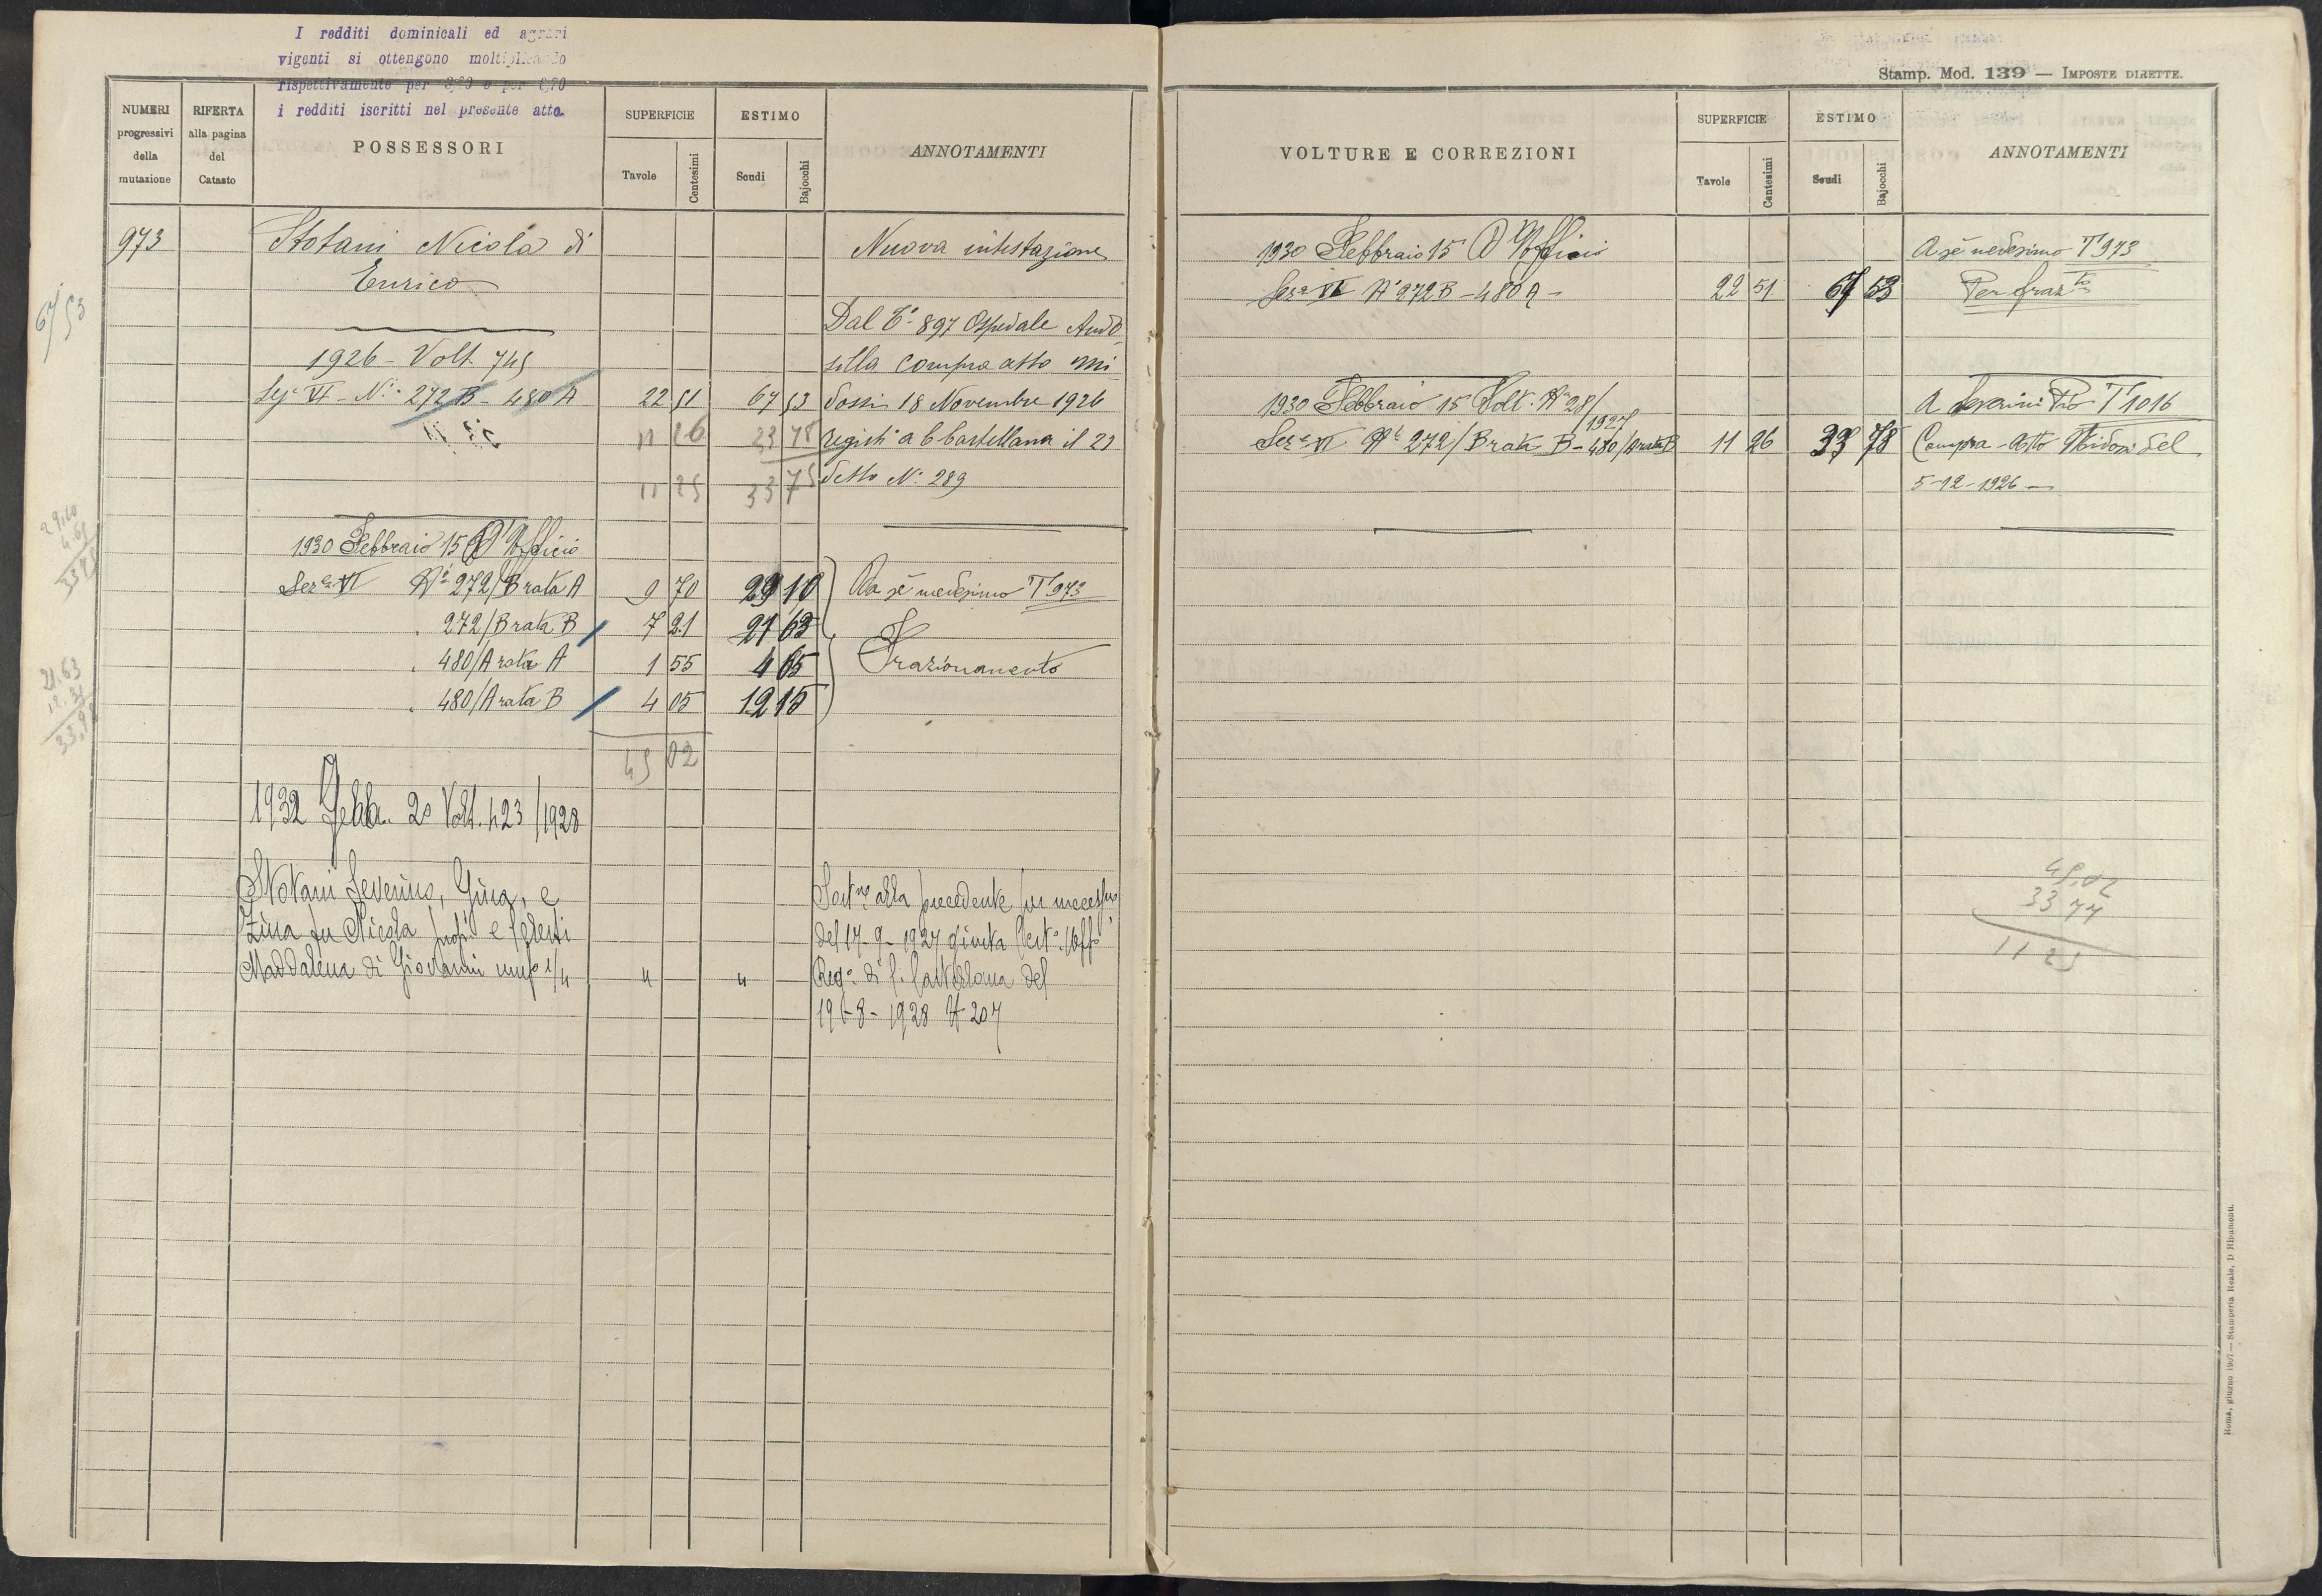 I redditi dominicali ed agrari
vigenti si ottengono moltiplicando
rispettivamente per e per
i redditi iscritti nel presente atto.
NUMERI progressivi della mutazione
RIFERTA alla pagina del Catasto
POSSESSORI
SUPERFICIE
Tavole
Centesimi
ESTIMO
Scudi
Bajocchi
ANNOTAMENTI
973 Stotani Nicola di Nuova intestazione
Enrico
67 53
Dal T° 897 Ospedale Ando
1926 - Volt. 745 silla compra atto Mi
Sez. VI - N.i 272 B - 480 A 22 51 67 53 dossi 18 Novembre 1926
11 26 33 78 registr° a C Castellana il 23
11 25 33 75 detto N. 289
1930 Febbraio 15 D'Ufficio
29.10
4.65
Sez.e VI N.i 272/B rata A 9 70 29 10 Da sé medesimo T 973
272/B rata B 7 21 21 63
480/A rata A 1 55 4 65 Frazionamento
480/A rata B 4 05 12 15
21.63
45 02
1932 Febb. 20 Volt. 123/1928
Stotani Severino, Gina, e
Zina fu Nicola prop. e
Maddalena di Giovanni usuf. 1/4 " "
alla precedente per successne
del 17-9-1927 giusta Cert.
Reg. di C. Castellana del
8-1928 N 207
Stamp. Mod. 139 — IMPOSTE DIRETTE.
VOLTURE E CORREZIONI
SUPERFICIE
Tavole
Centesimi
ESTIMO
Scudi
Bajocchi
ANNOTAMENTI
1930 Febbraio 15 D'Ufficio A sé medesimo T 973
Sez.e VI N.i 272 B - 480 A - 22 51 67 53 Per fraz.to
1930 Febbraio 15 Volt. N° 28/1927 A Severini Pio T 1016
Sez.e VI N.i 272/B rata B - 480/A rata B 11 26 33 78 Compra - Atto Midossi del
5-12-1926 -
45.02
33 77
11 25
Roma, giugno 1907 — Stamperia Reale, D. Ripamonti.